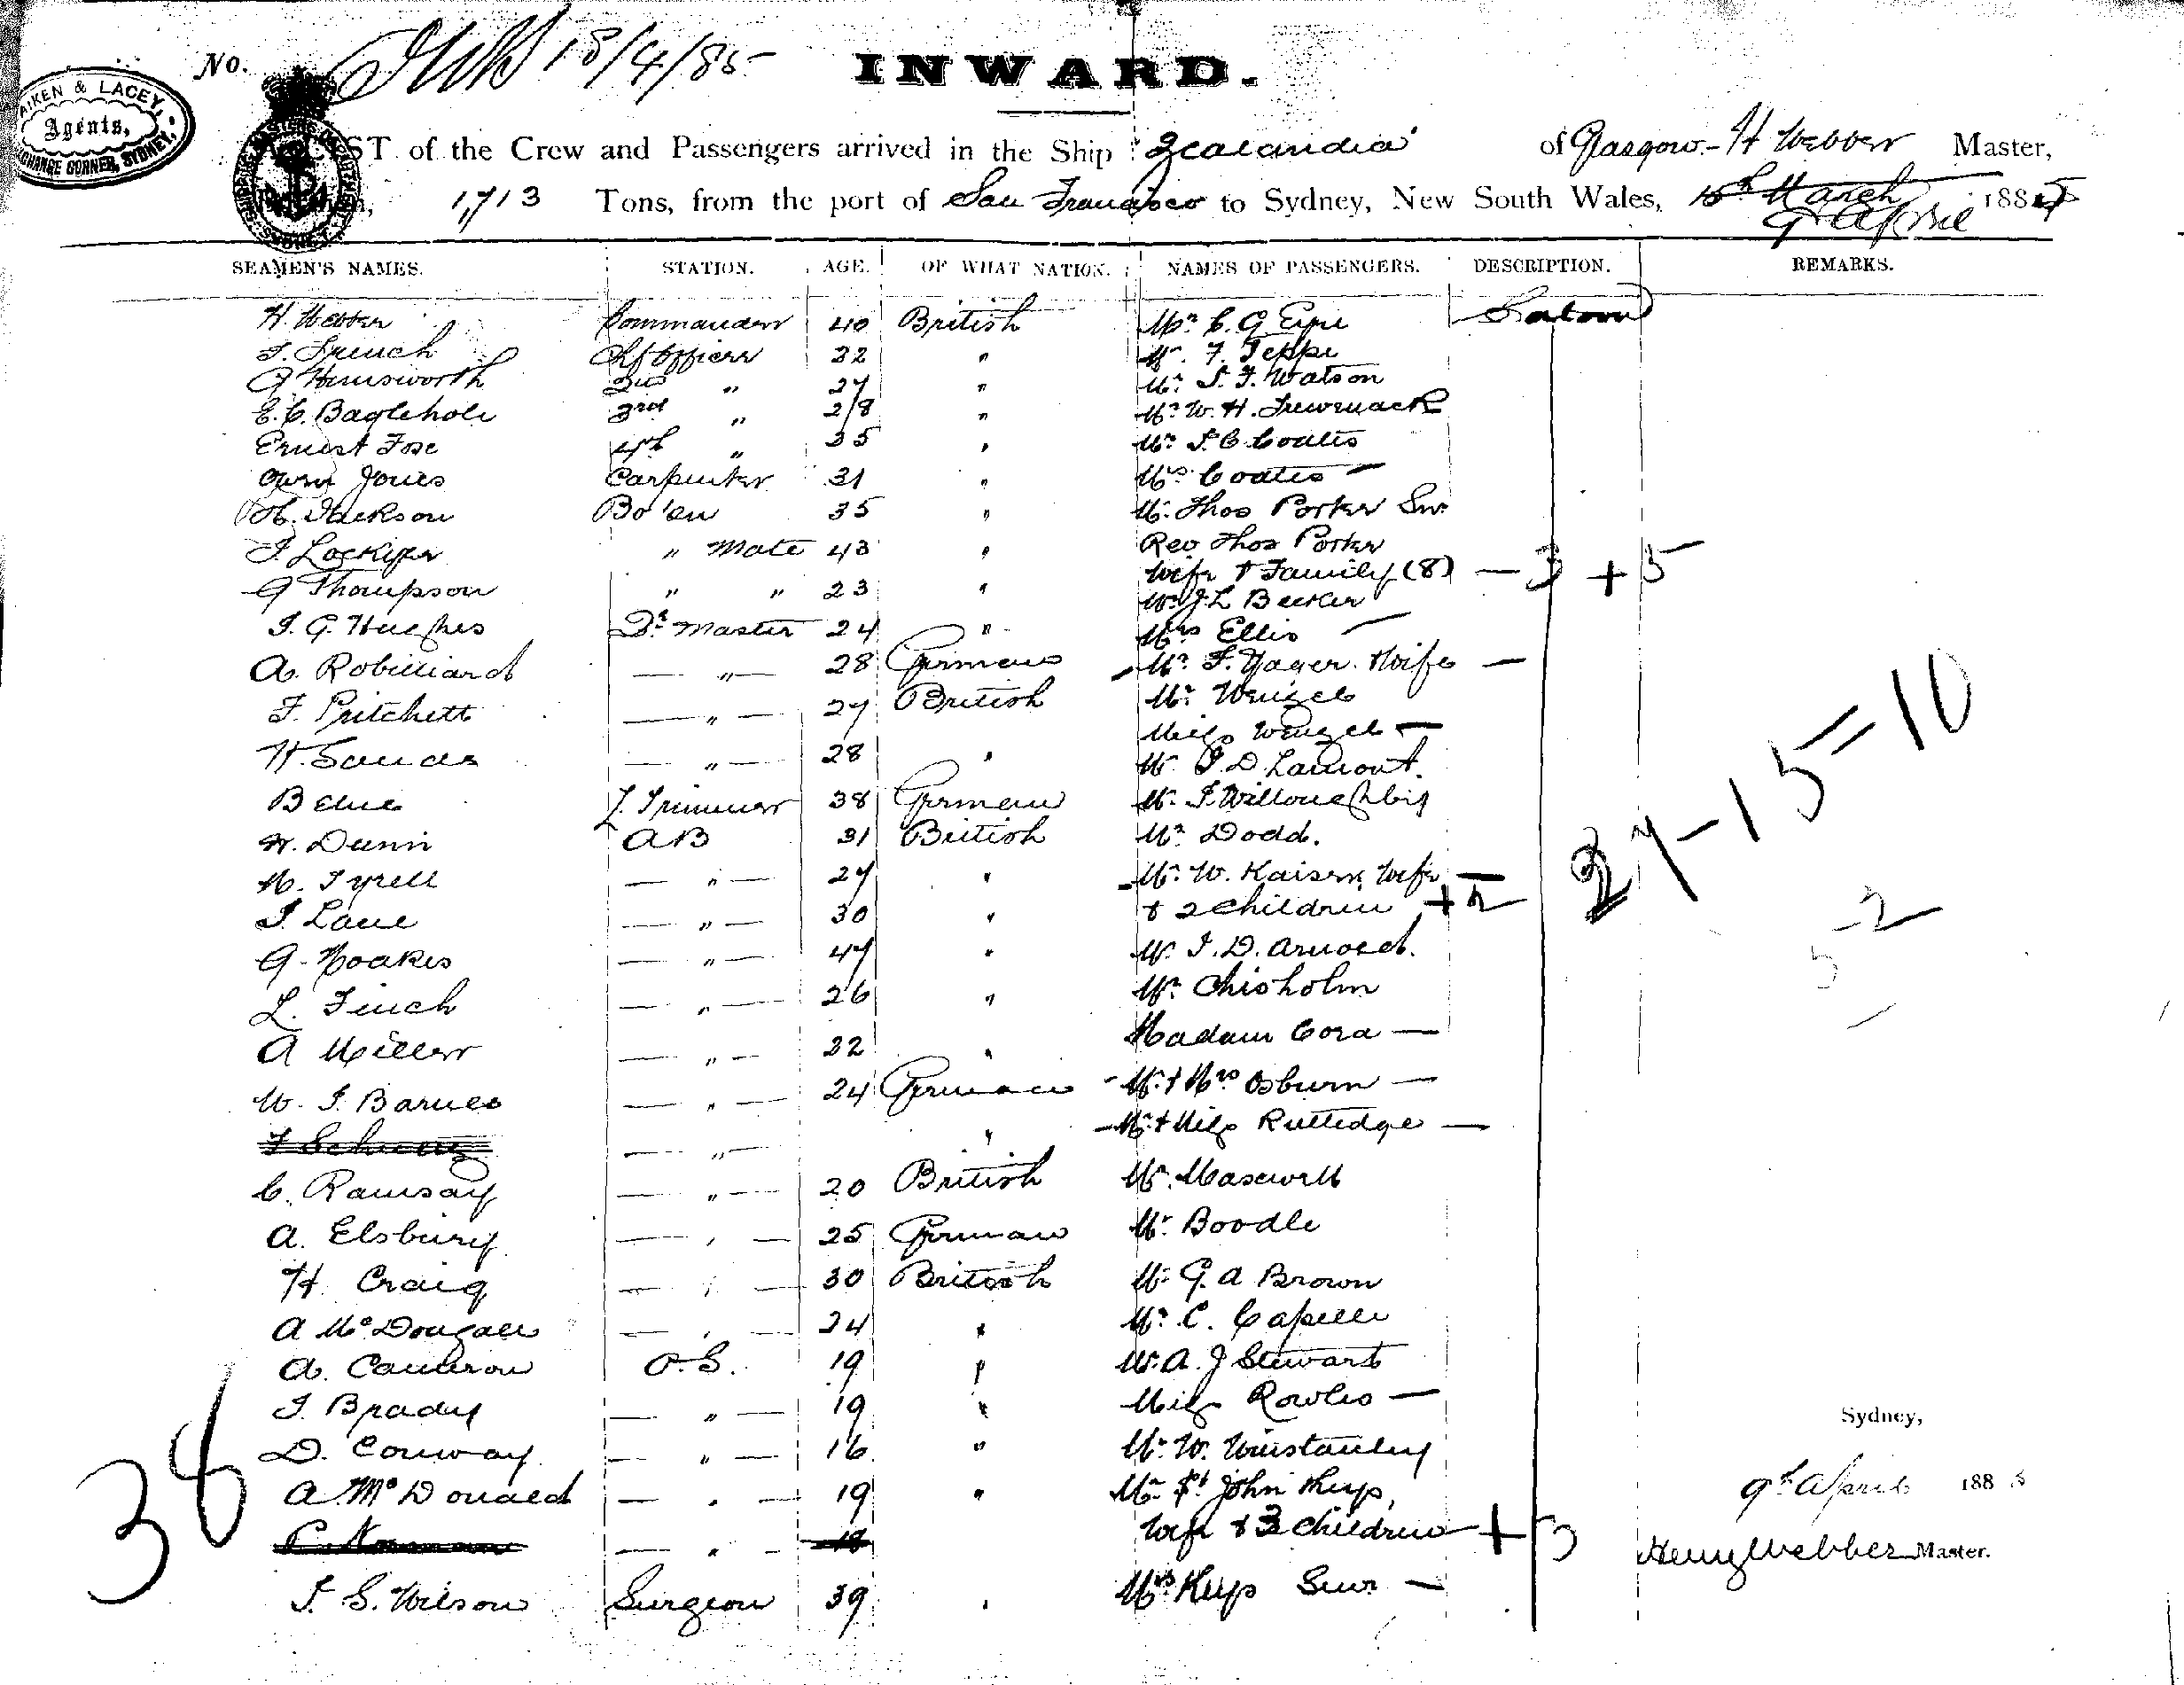 No. 18/4/85
INWARD.
AIKEN & LACEY,
Agents,
EXCHANGE CORNER, SYDNEY.
A LIST of the Crew and Passengers arrived in the Ship "Zealandia" of Glasgow - H Webber Master,
1,713 Tons, from the port of San Francisco to Sydney, New South Wales, 15th March 1885
9th April
SEAMEN'S NAMES. STATION. AGE. OF WHAT NATION. NAMES OF PASSENGERS. DESCRIPTION. REMARKS.
H. Webber Commander 40 British Mr C. G. Eyre Saloon
J. French Chf Officer 32 " Mr. F. Teppe
Hemsworth 2nd " 27 " Mr. S. F. Watson
E. C. Baglehole 3rd " 28 " Mr W. H.
Ernest Fox 4th " 35 " Mr J. C. Coates
Owen Jones Carpenter 31 " Mrs Coates —
H. Jackson Bo'sn 35 " Mr. Thos Porter Snr
J. Lockyer " Mate 43 " Rev Thos Porter
G Thompson " " 23 " Wife & Family (8) — 3 + 5
Mr J. L Becker
J. G. Hughes Qr Master 24 " Mrs Ellis —
A. Robilliard — " — 28 German Mr. F. Yager. Wife —
F. Pritchett — " — 27 British Mr Wenzel
Miss Wenzel —
H. Sands — " — 28 " Mr J. D. Lamont.
B L. Trimmer 38 German Mr. J. Willoughby
H. Dunn AB 31 British Mr Dodd.
M. Tyrell — " — 27 " Mr. W. Kaiser, Wife —
J. Lane — " — 30 " & 2 Children + 2
G. Noakes — " — 47 " Mr J. D. Arnold.
L. Finch — " — 26 " Mr Chisholm
A Miller — " — 22 " Madam Cora —
W. J. Barnes — " — 24 German Mr & Mrs Osburn —
— " — " Mr & Miss Rutledge —
C. Ramsay — " — 20 British Mr. Maxwell
A. Elsbury — " — 25 German Mr. Boodle
H. Craig — " — 30 British Mr G. A Brown
A McDougall — " — 24 " Mr. C. Capelle
A. Cameron O.S. 19 " Mr. A. J Stewart
J. Brady — " — 19 " Miss Rowles —
D. Conway — " — 16 " Mr. W. Winstanley
A McDonald — " — 19 " Mr St John Keys,
— " — 18 Wife & 3 Children + 3
J. S. Wilson Surgeon 39 " Mrs Keys Senr —
27-15=10
2
5
38
Sydney,
9th April 1885
Henry Webber Master.